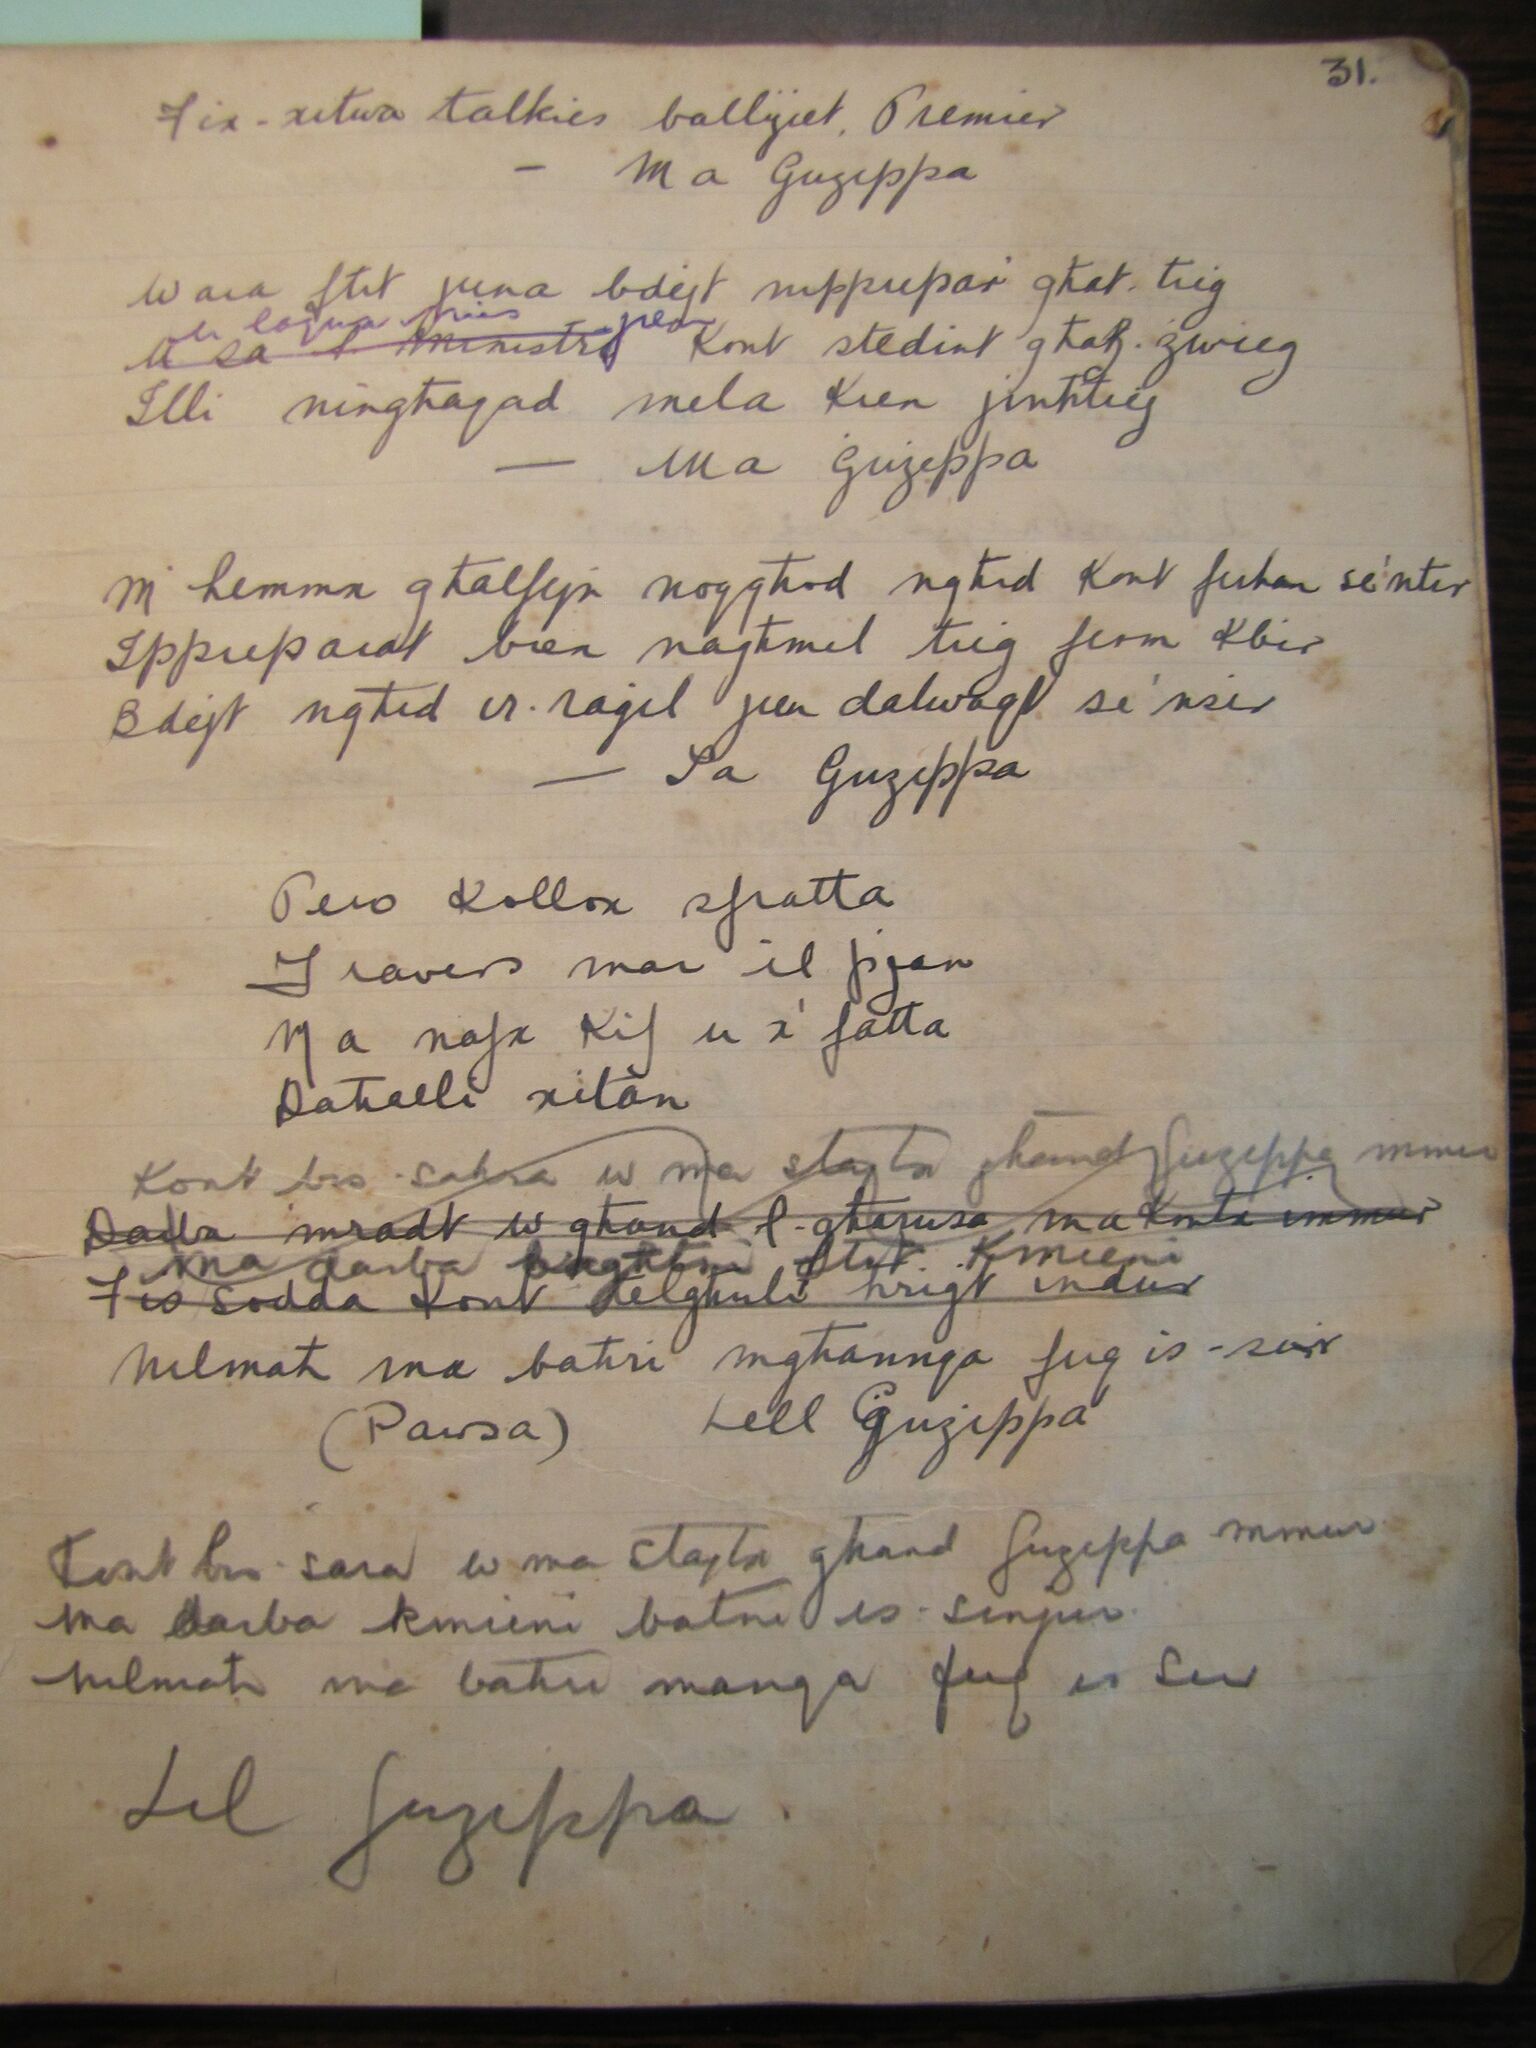 31.
Fix-xitwa talkies ballijiet, Premier
— Ma Guzeppa
Wara ftit jiena bdejt nipprepar għat-tieġ
Kont stedint għaż-żwieġ
Illi ningħaqad mela kien jinħtieġ
— Ma Ġużeppa
M'hemmx għalfejn noqgħod ngħid kont ferħan se'nter
Ippreparat bien nagħmel tieġ ferm kbir
Bdejt ngħid ir-raġel jien dalwaqt se'nsir
— Sa Guzeppa
Pero kollox sfratta
Travers mar il pjan
Ma nafx kif u x'fatta
Daħalli xitàn
Kont bis-saħħa w ma stajtx għand Guzeppa mmur
Darba mradt w għand l-għarusa ma kontx immur
Ma darba Kmieni
Fis sodda kont telgħuli ħriġt indur
Nilmaħ ma baħri mgħannqa fuq is-sur
(Pawsa) Lell Ġużeppa
Kont bis-sara w ma stajtx għand Guzeppa mmur
Ma darba kmieni is-sinjur
Nilmaħ ma baħri manqa fuq is sur
Lil Guzeppa